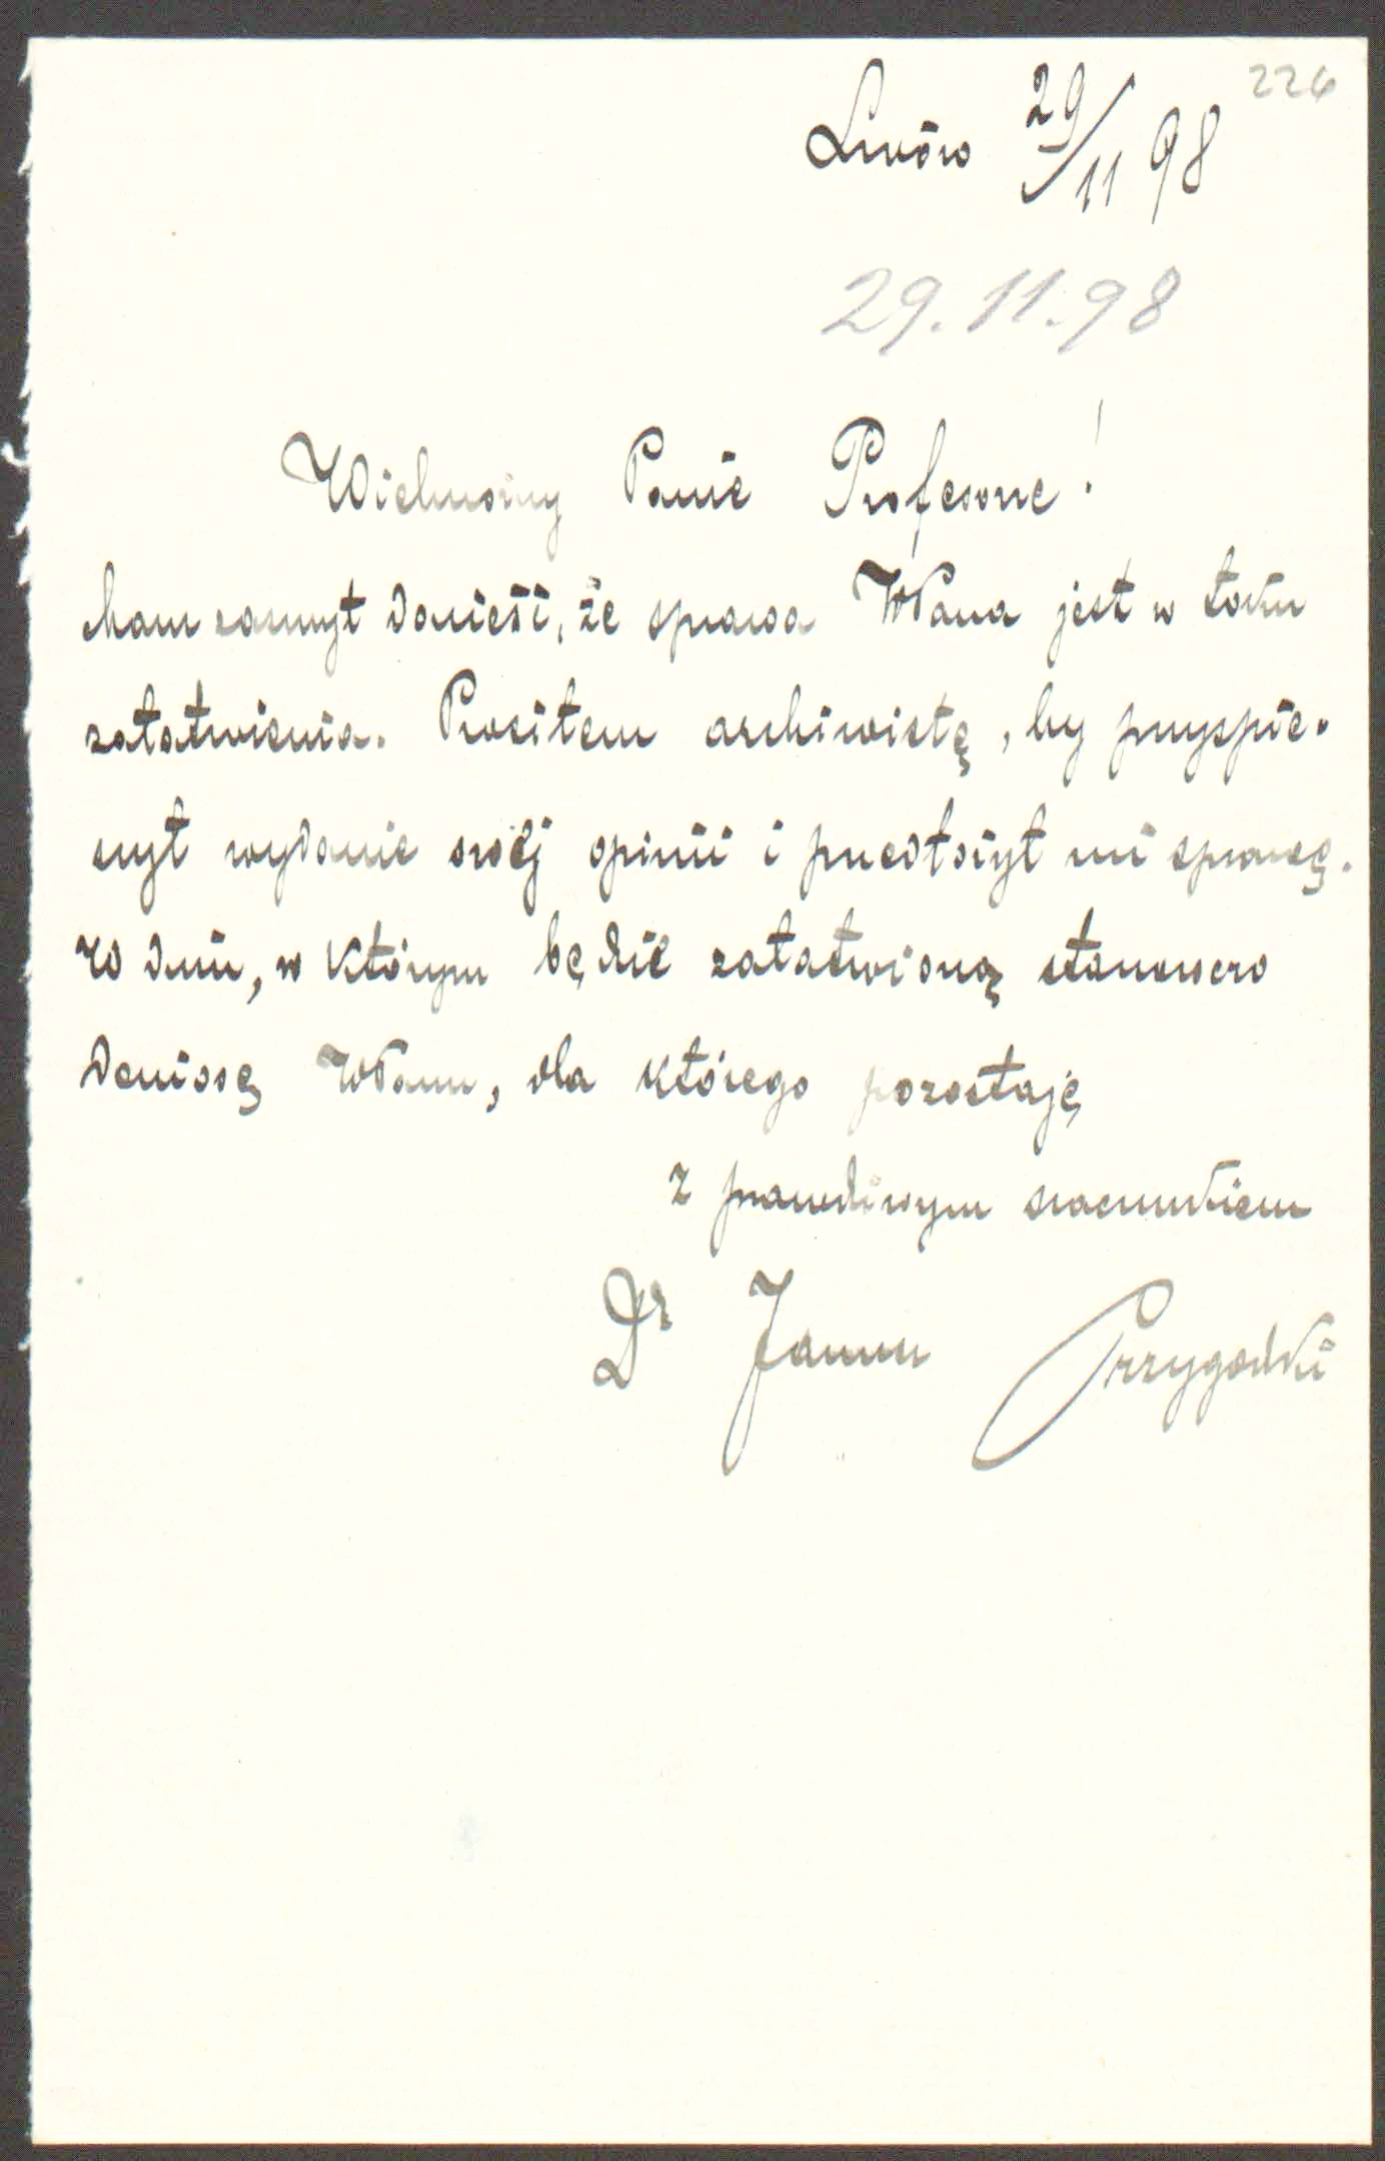 226
Lwów 29/11 98
29.11.98
Wielmożny Panie Profesorze!
Mam zaszczyt donieść, że sprawa WPana jest w toku
załatwienia. Prosiłem archiwistę, by przyspie-
szył wydanie swéj opinii i przedłożył mi sprawę.
W dniu, w którym będzie załatwioną stanowczo
doniosę WPanu, dla którego pozostaję
z prawdziwym szacunkiem
Dr Przygodzki